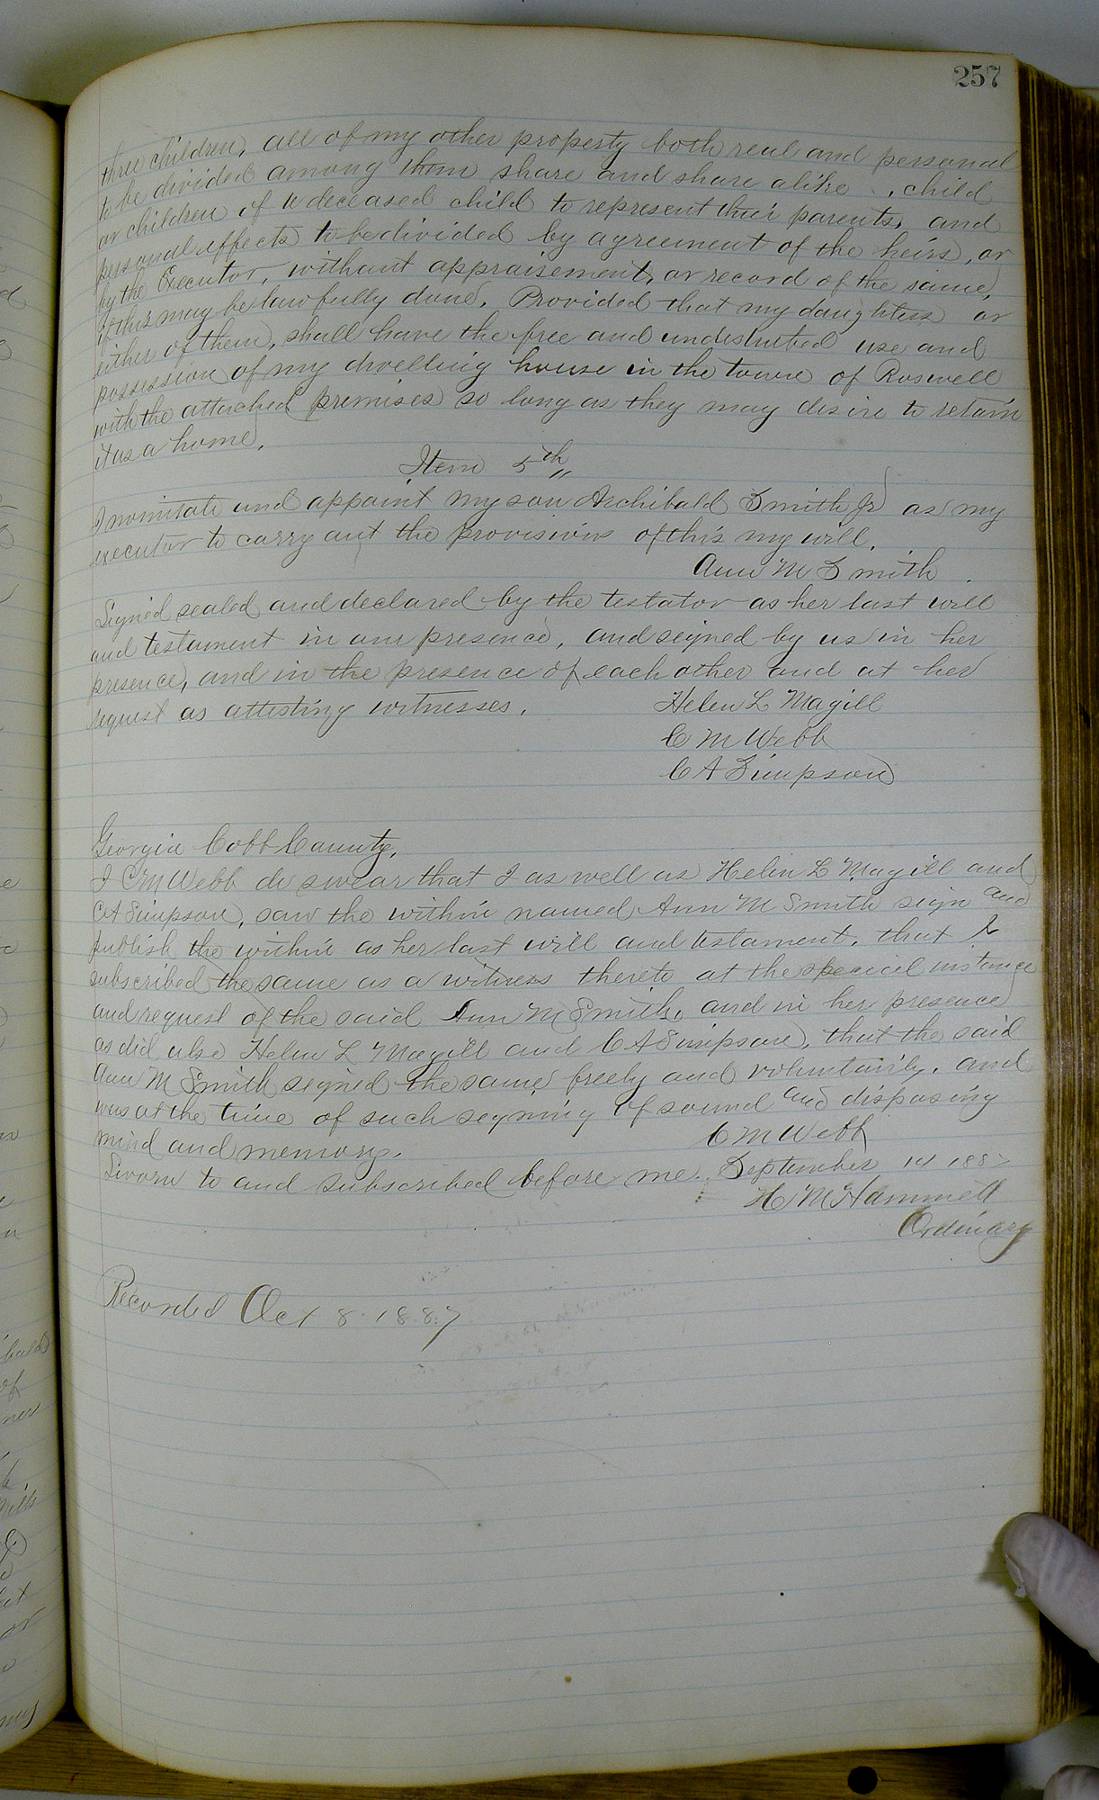 257
three children, all of my other property both real and personal
to be divided among them share and share alike, child
or children of a deceased child to represent their parents, and
personal effects to be divided by agreement of the heirs, or
by the Executor, without appraisement, or record of the same,
if this may be lawfully done, Provided that my daughters or
either of them, shall have the free and undisturbed use and
possession of my dwelling house in the town of Roswell
with the attached premises so long as they may desire to retain
it as a home.
Item 5th
I nominate and appoint my son Archibald Smith Jr as my
executor to carry out the provisions of this my will.
Ann M Smith
Signed sealed and declared by the testator as her last will
and testament in our presence, and seigned by us in her
presence, and in the presence of each other and at her
request as attesting witnesses.
Helen L Magill
C M Webb
C A Simpson
Georgia Cobb County,
I C M Webb do swear that I as well as Helen L Magill and
C A Simpson, saw the within named Ann M Smith sign and
publish the within as her last will and testament, that I
subscribed the same as a witness thereto at the special instance
and request of the said Ann M Smith, and in her presence
as did also Helen L Magill and C A Simpson, that the said
Ann M Smith signed the same freely and voluntarily, and
was at the time of such seyning of sound and disposing
mind and memory.
C M Webb
Sworn to and subscribed before me. September 1st 1887
H M Hammett
Ordinary
Recorded Oct 8 1887